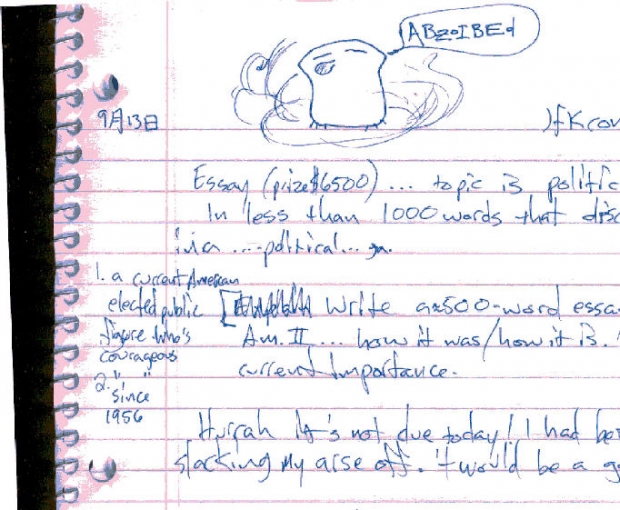 ABzoIBEd
9月13日
JfKcou
Essay (prize$6500)... topic is politic
In less than 1000 words that disc
in a ....political...
1. a current American
elected public
figure who's
courageous
2. " "
since
1956
[ Write a≈500-word essa
Am. II... how it was/how it is.
current importance.
Hurrah It's not due today! I had be
slacking my arse off. 'twould be a go